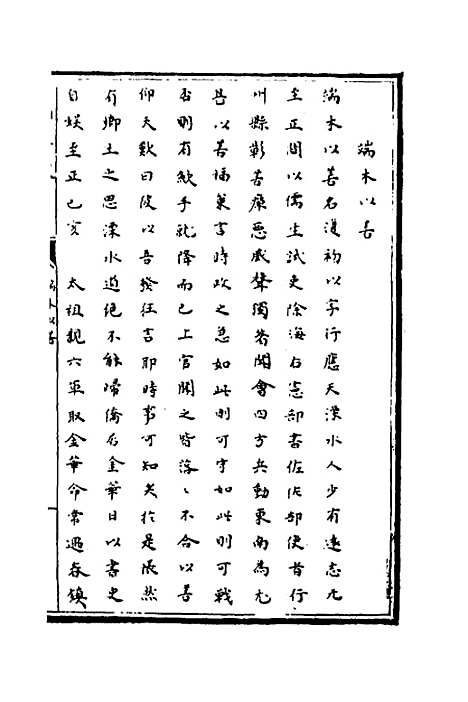 端木以善
端木以善名復初以字行應天溧水人少有遠志元
至正間以儒生試吏除海右憲部書佐佐部使者行
州縣彰善癉惡威聲獨著聞會四方兵動東南為尤
甚以善條策言時政之急如此則可守如此則可戰
否則有斂手就降而已上官聞之皆落〻不合以善
仰天歎曰彼以吾發狂言耶時事可知矣於是悵然
有鄉土之思溧水道絕不能歸僑居金華日以書史
自娛至正己亥　太祖親六軍取金華命常遇春鎮
端木以善